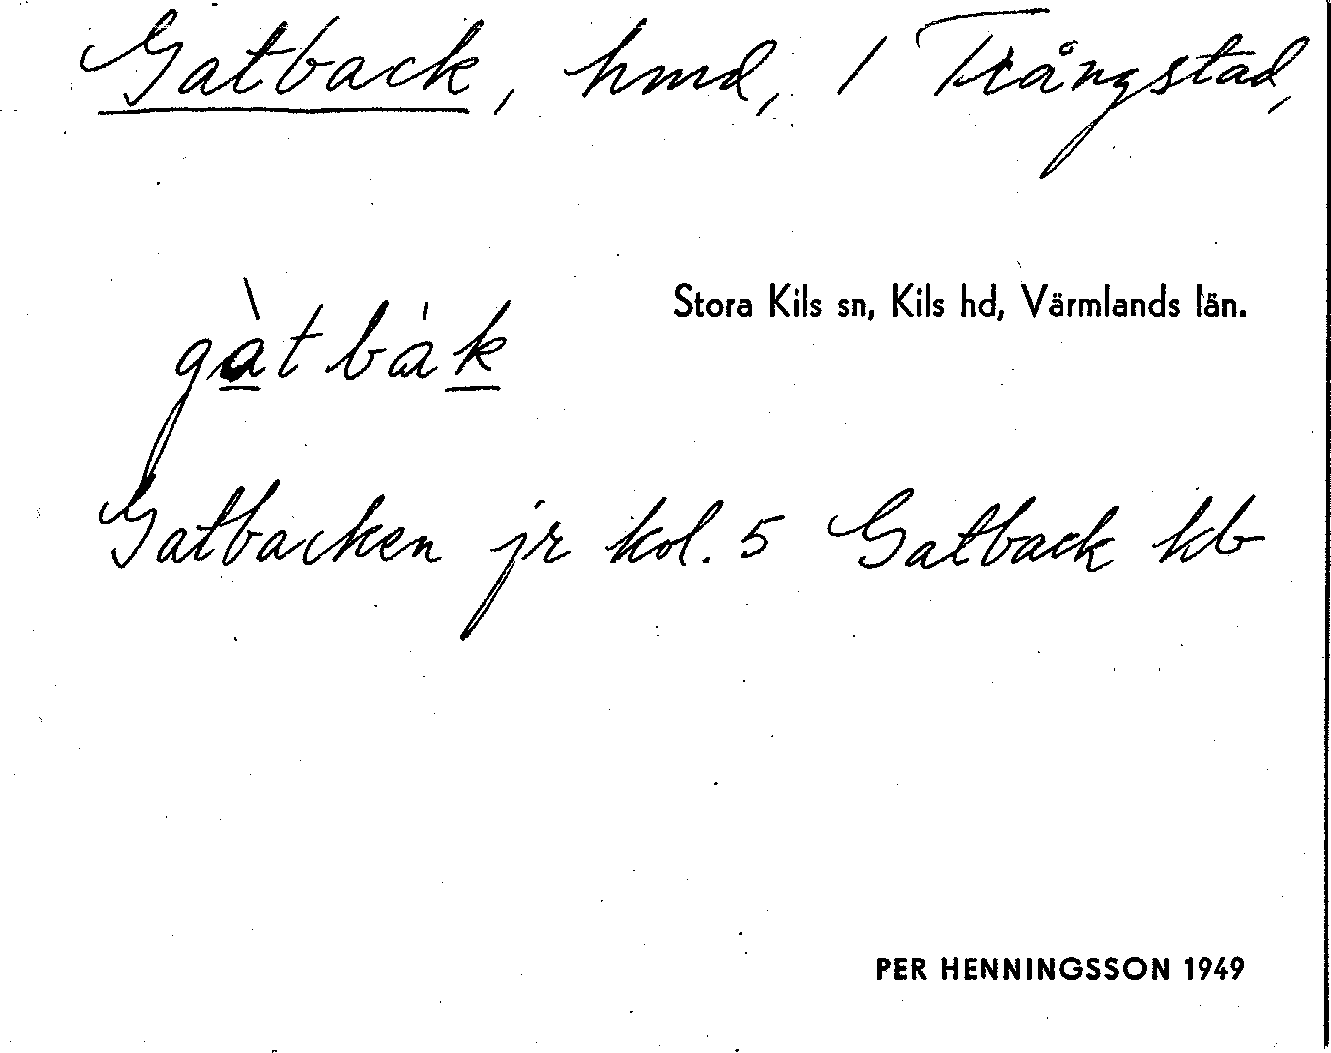 Gatback, hmd, / Trångstad,
Stora Kils sn, Kils hd, Värmlands län.
gàtbák
Gatbacken jr kol. 5 Gatback kb
PER HENNINGSSON 1949